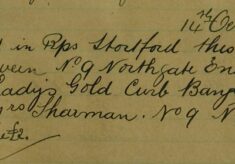 14th Oc
in Bps Stortford this
ween No. 9 Northgate En
Lady's Gold Curb Bang
rs Sharman. No 9 N